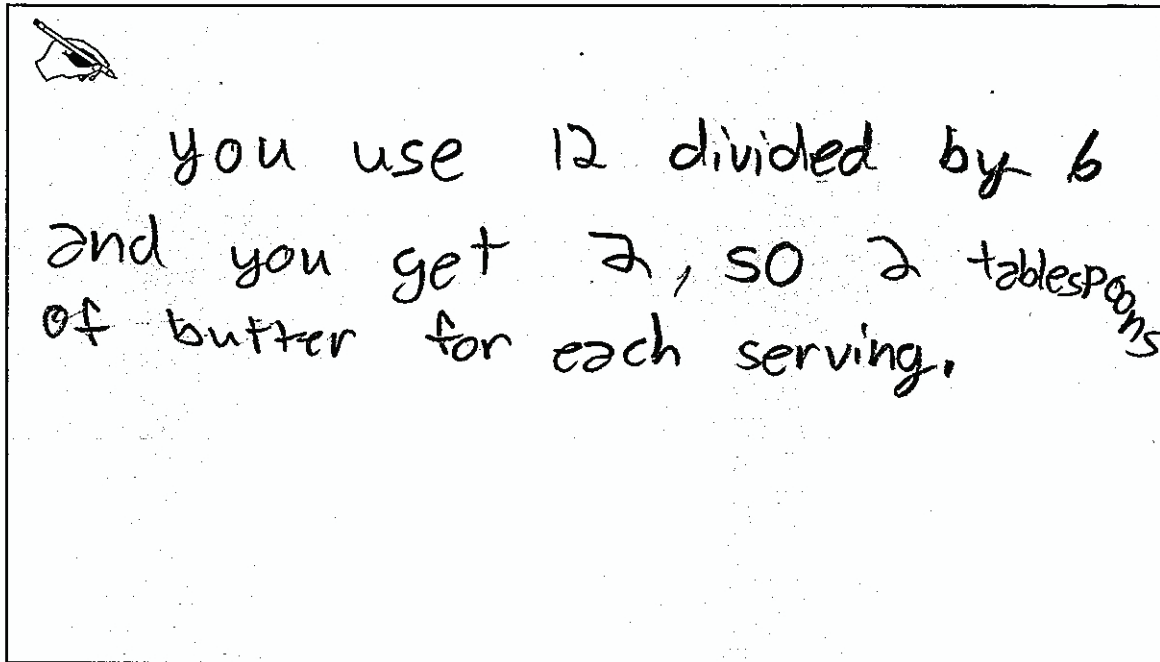 you use 12 divided by 6
and you get 2, so 2 tablespoons
of butter for each serving.